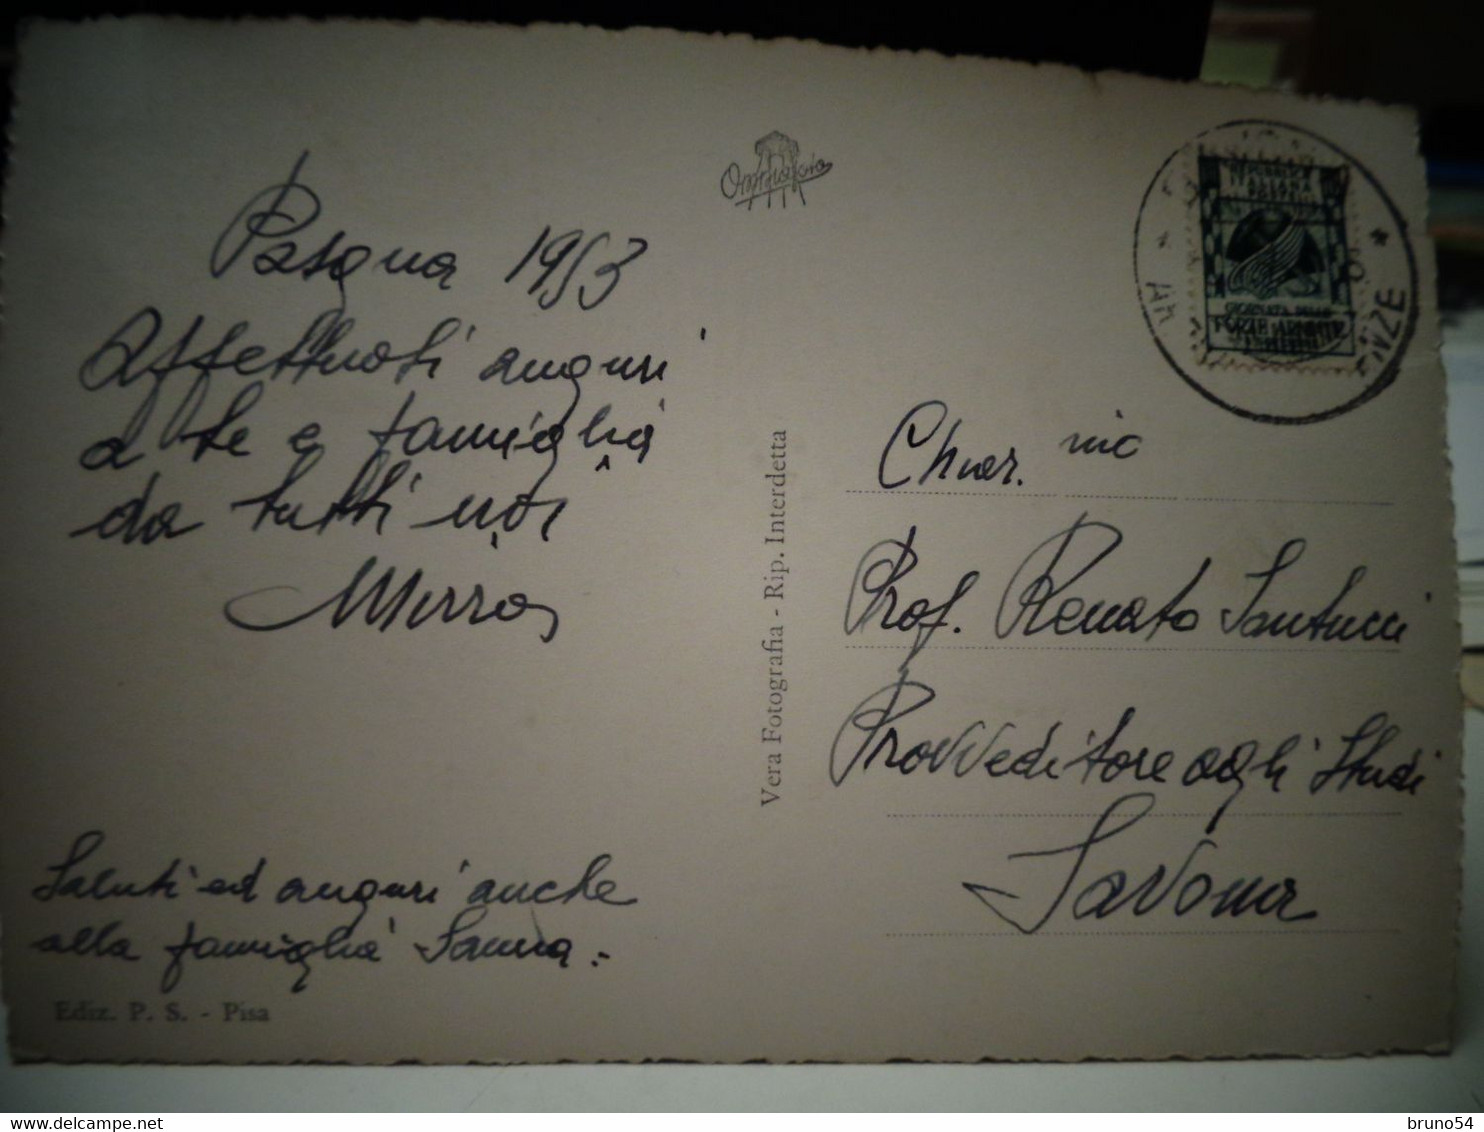 Omniafoto
Pasqua 1953
Affettuosi auguri
a te e famiglia
da tutti noi
Saluti ed auguri anche
alla famiglia Sanna.
Ediz. P. S. - Pisa
Vera Fotografia - Rip. Interdetta
REPUBBLICA
ITALIANA
GIORNATA DELLE
FORZE ARMATE
Chiar. mo
Prof. Renato Santucci
Provveditore agli Studi
Savona
bruno54